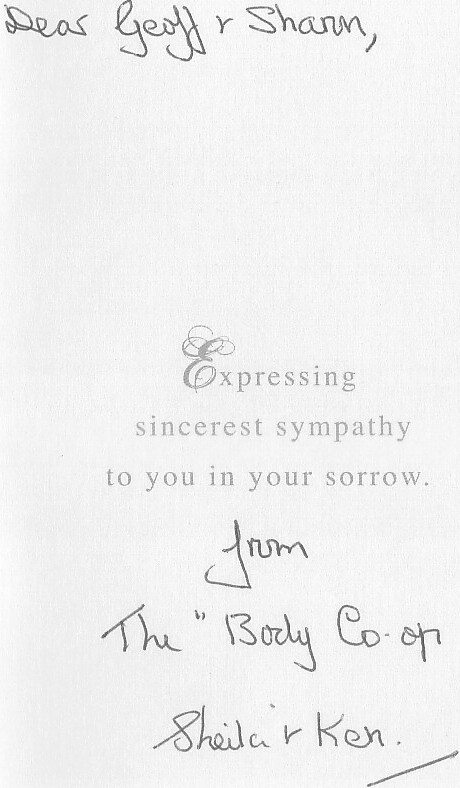 Dear Geoff & Sharon,
Expressing
sincerest sympathy
to you in your sorrow.
from
The "Body Co-op
Sheila & Ken.